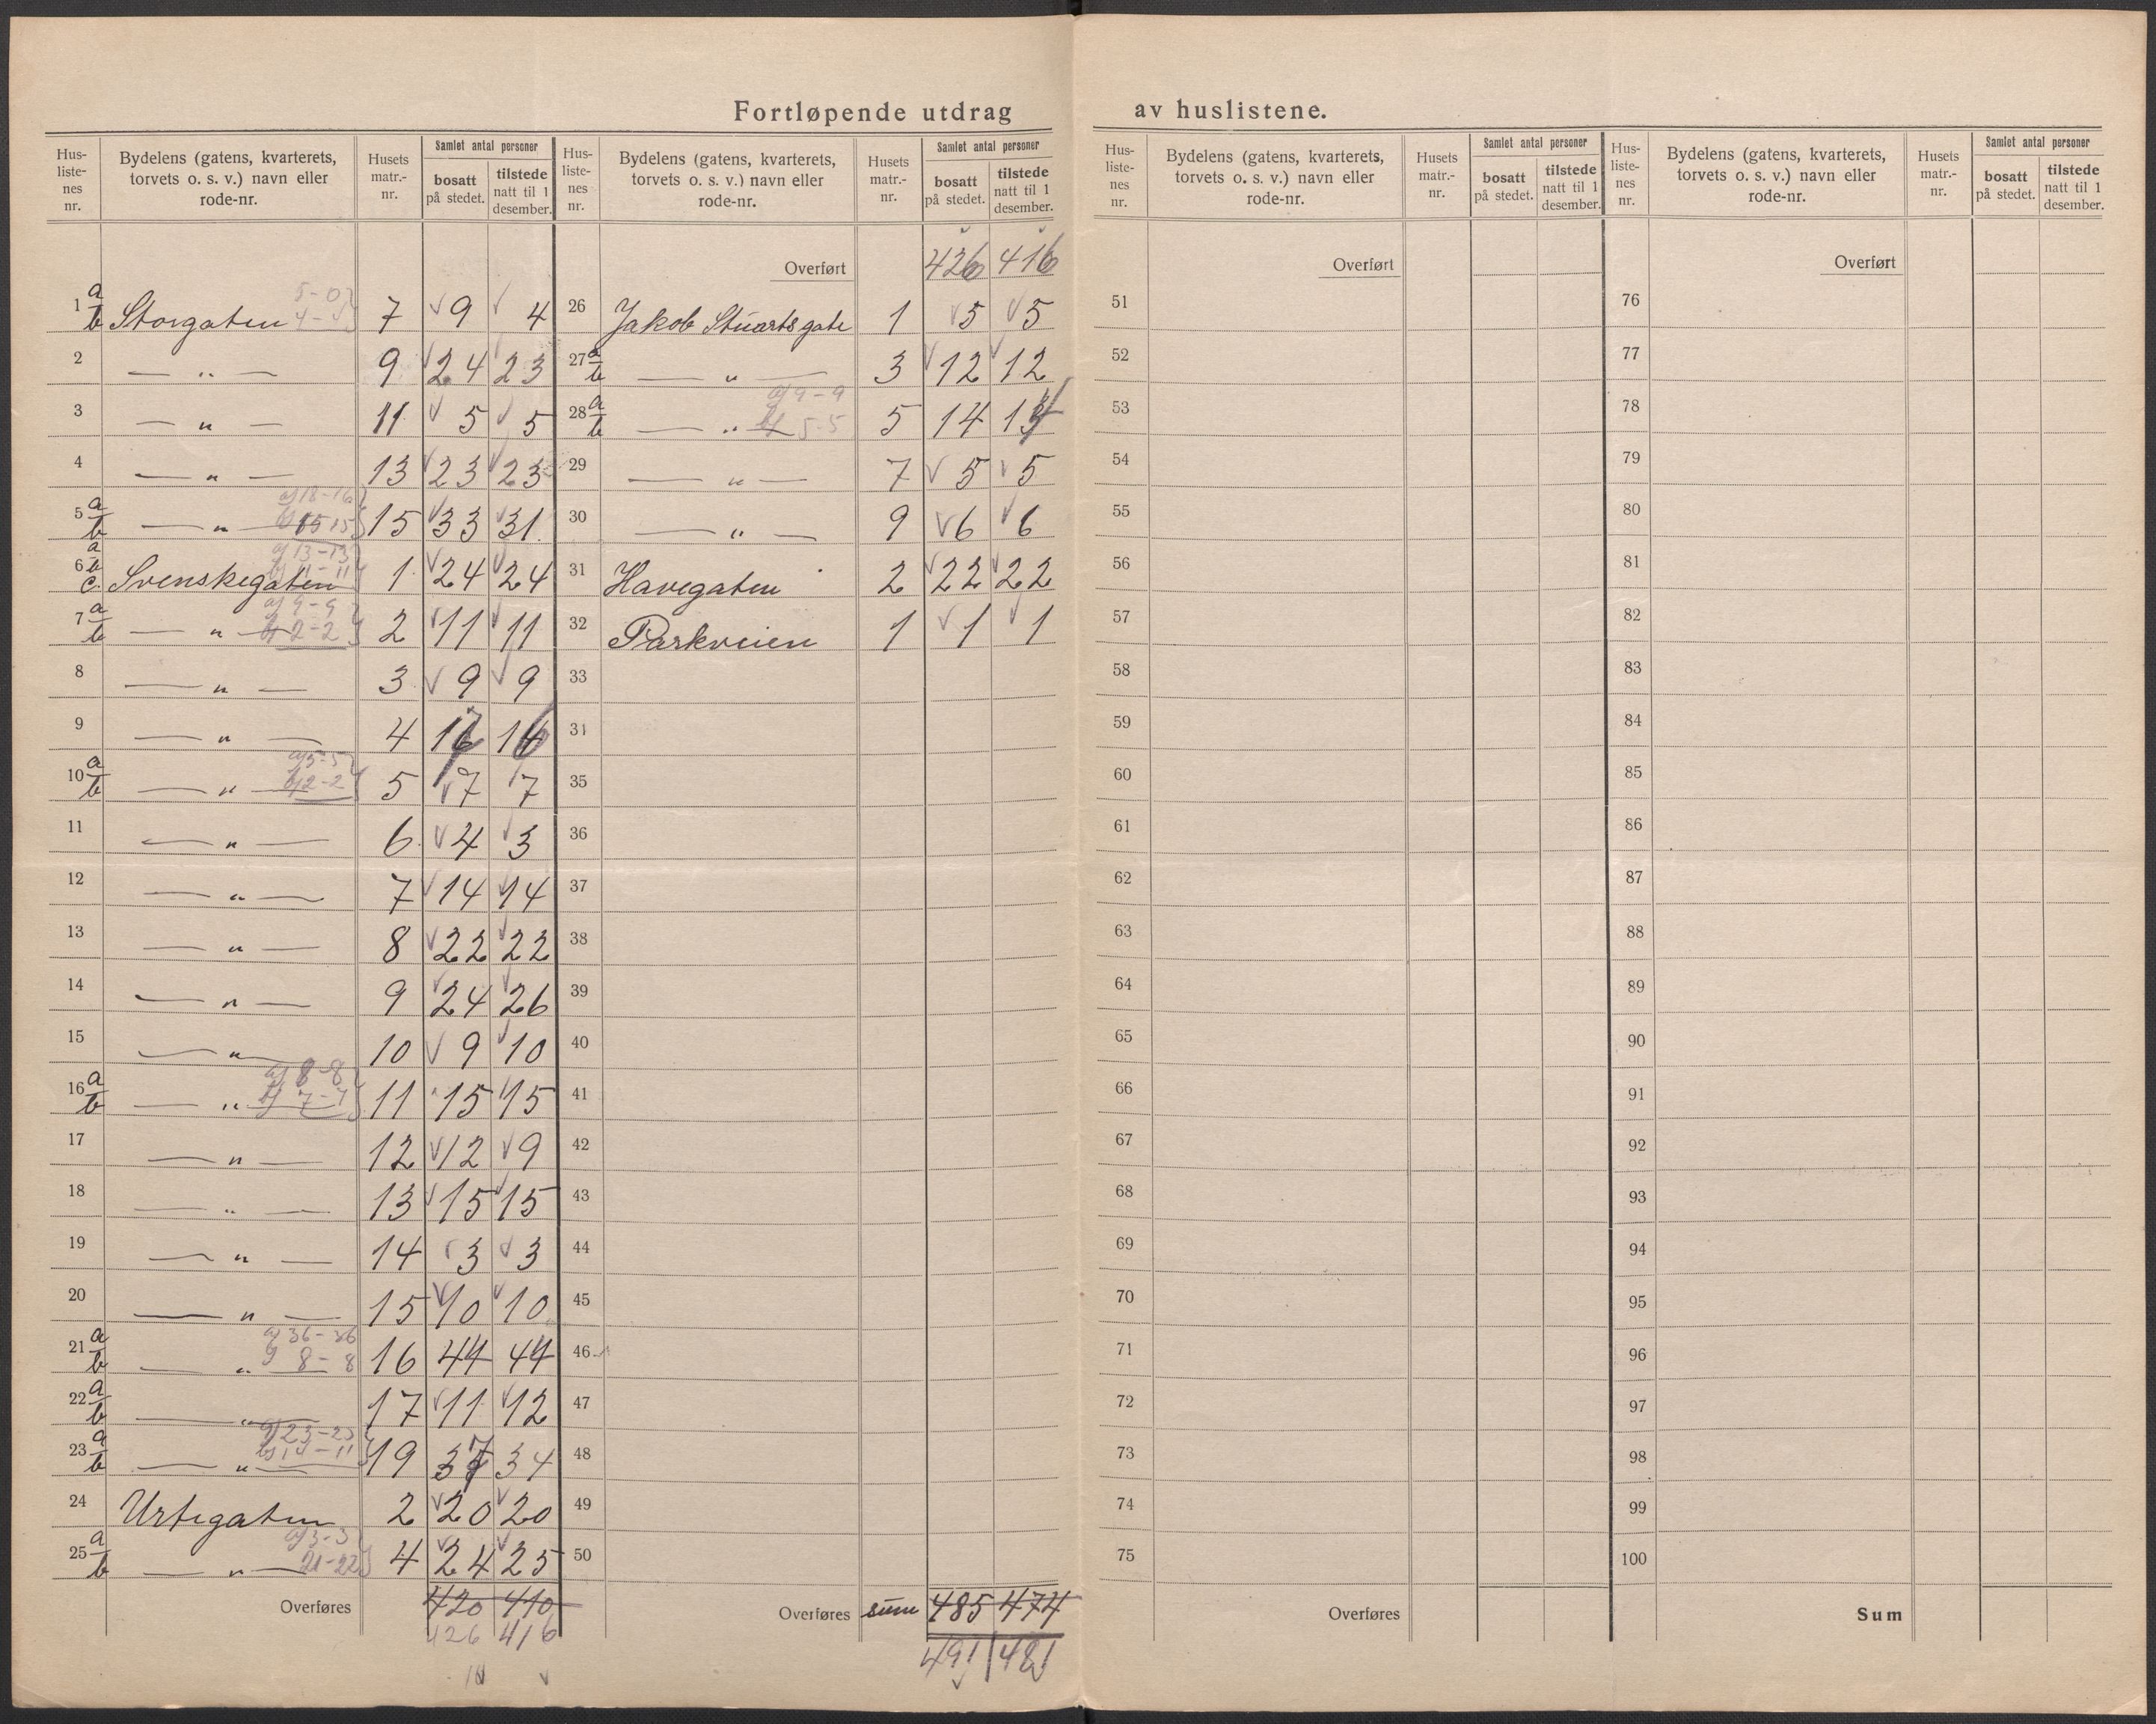 Fortløpende utdrag av huslistene.
Hus-liste-nes nr. | Bydelens (gatens, kvarterets, torvets o. s. v.) navn eller rode-nr. | Husets matr.-nr. | Samlet antal personer bosatt på stedet. | tilstede natt til 1 desember.
1 a b Storgaten 7 9 4
2 — " — 9 24 23
3 — " — 11 5 5
4 — " — 13 23 23
5 a b — " — 15 33 31
6 a b c Svenskegaten 1 24 24
7 a b — " — 2 11 11
8 — " — 3 9 9
9 — " — 4 17 16
10 a b — " — 5 7 7
11 — " — 6 4 3
12 — " — 7 14 14
13 — " — 8 22 22
14 — " — 9 24 26
15 — " — 10 9 10
16 a b — " — 11 15 15
17 — " — 12 12 9
18 — " — 13 15 15
19 — " — 14 3 3
20 — " — 15 10 10
21 a b — " — 16 44 44
22 a b — " — 17 11 12
23 a b — " — 19 37 34
24 Urtegaten 2 20 20
25 a b — " — 4 24 25
Overføres 420 410
426 416
Hus-liste-nes nr. | Bydelens (gatens, kvarterets, torvets o. s. v.) navn eller rode-nr. | Husets matr.-nr. | Samlet antal personer bosatt på stedet. | tilstede natt til 1 desember.
Overført 426 416
26 Jakob Stuarts gate 1 5 5
27 a b — " — 3 12 12
28 a b — " — 5 14 14
29 — " — 7 5 5
30 — " — 9 6 6
31 Havegaten 2 22 22
32 Parkveien 1 1 1
33
31
35
36
37
38
39
40
41
42
43
44
45
46
47
48
49
50
Overføres sum 485 474
491 481
Hus-liste-nes nr. | Bydelens (gatens, kvarterets, torvets o. s. v.) navn eller rode-nr. | Husets matr.-nr. | Samlet antal personer bosatt på stedet. | tilstede natt til 1 desember.
Overført
51
52
53
54
55
56
57
58
59
60
61
62
63
64
65
66
67
68
69
70
71
72
73
74
75
Overføres
Hus-liste-nes nr. | Bydelens (gatens, kvarterets, torvets o. s. v.) navn eller rode-nr. | Husets matr.-nr. | Samlet antal personer bosatt på stedet. | tilstede natt til 1 desember.
Overført
76
77
78
79
80
81
82
83
84
85
86
87
88
89
90
91
92
93
94
95
96
97
98
99
100
Sum